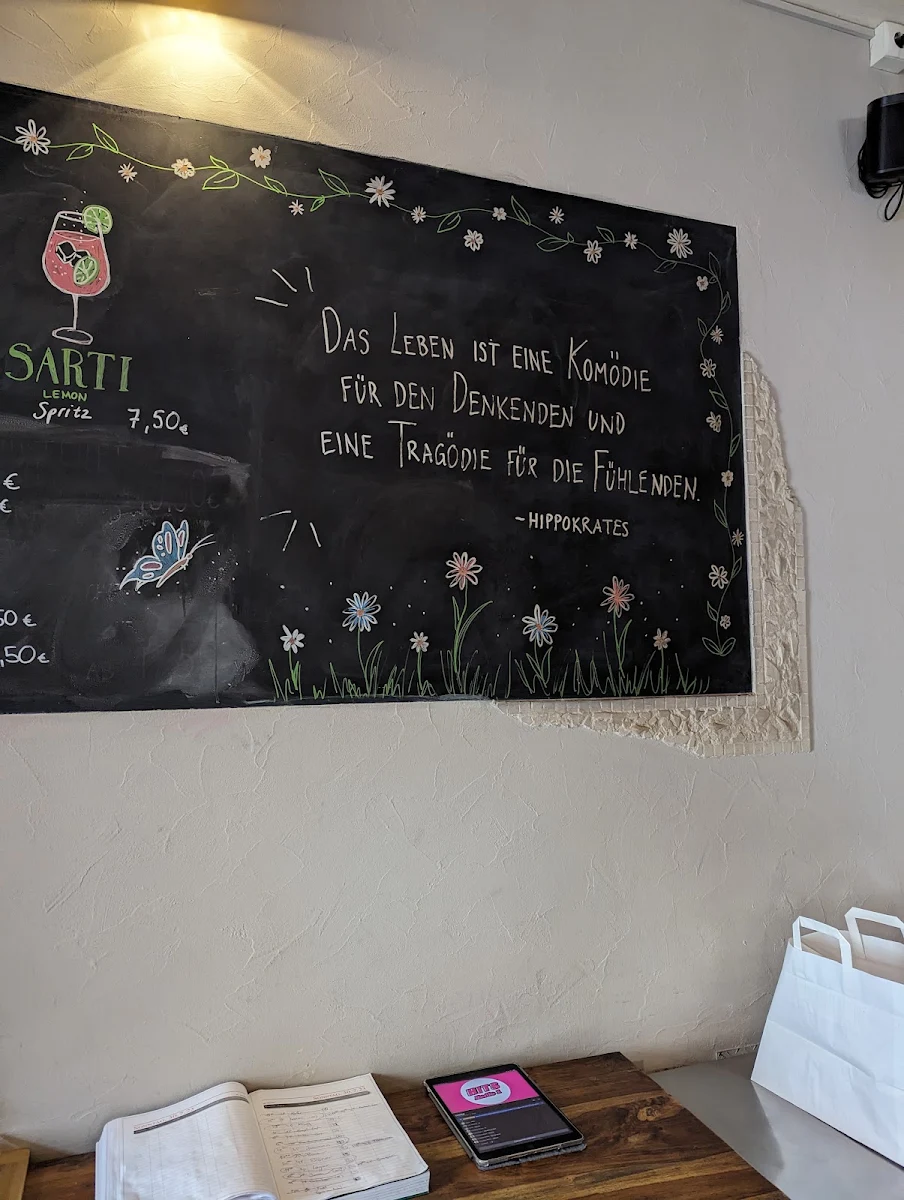 SARTI
LEMON
Spritz 7,50€
€
€
50 €
,50€
DAS LEBEN IST EINE KOMÖDIE
FÜR DEN DENKENDEN UND
EINE TRAGÖDIE FÜR DIE FÜHLENDEN.
-HIPPOKRATES
HITS